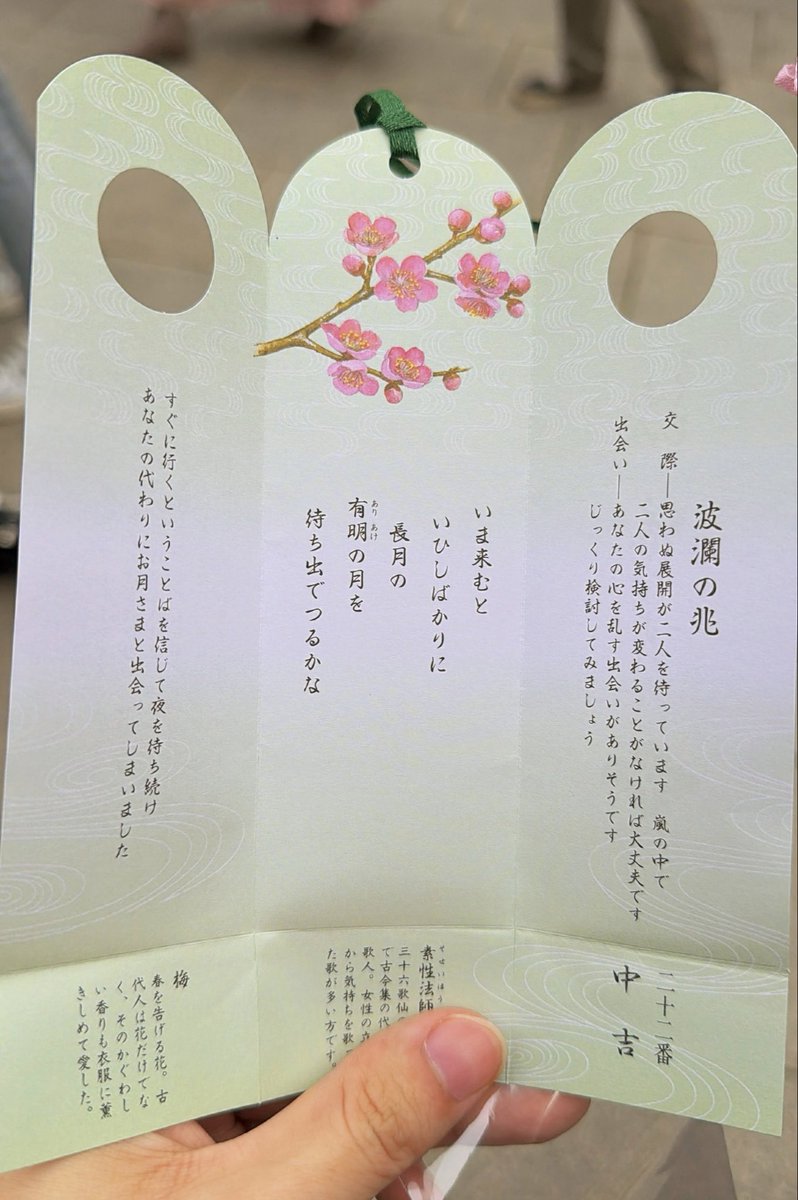 波瀾の兆
交際―思わぬ展開が二人を待っています　嵐の中で
二人の気持ちが変わることがなければ大丈夫です
出会い―あなたの心を乱す出会いがありそうです
じっくり検討してみましょう
二十二番
中吉
いま来むと
いひしばかりに
長月の
有明の月を
ありあけ
待ち出でつるかな
素性法師
三十六歌仙の
て古今集の代
歌人。女性の立
から気持ちを歌
た歌が多い方です。
すぐに行くということばを信じて夜を待ち続け
あなたの代わりにお月さまと出会ってしまいました
梅
春を告げる花。古
代人は花だけでな
く、そのかぐわし
い香りも衣服に薫
きしめて愛した。